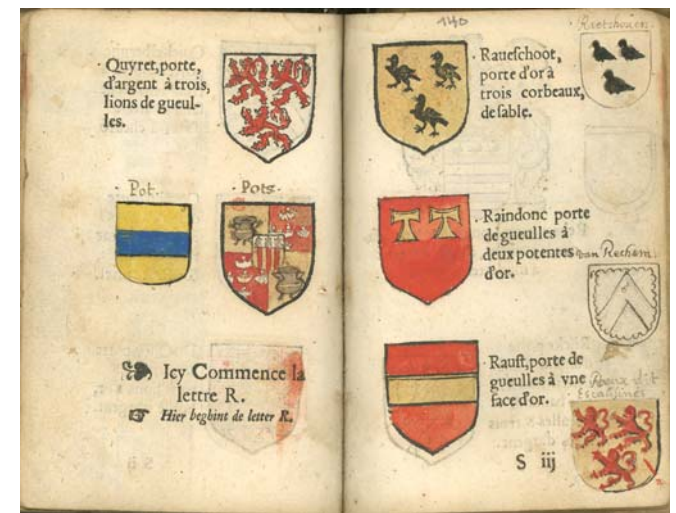 Quyret, porte,
d'argent à trois,
lions de gueul-
les.
Pot.
Pots.
Icy Commence la
lettre R.
Hier beghint de letter R.
140
Raueſchoot,
porte d'or à
trois corbeaux,
de ſable.
Raindonc porte
de gueulles à
deux potentes
d'or.
van Rechem
Rauſt, porte de
gueulles à vne
face d'or.
Escaussines
S iij